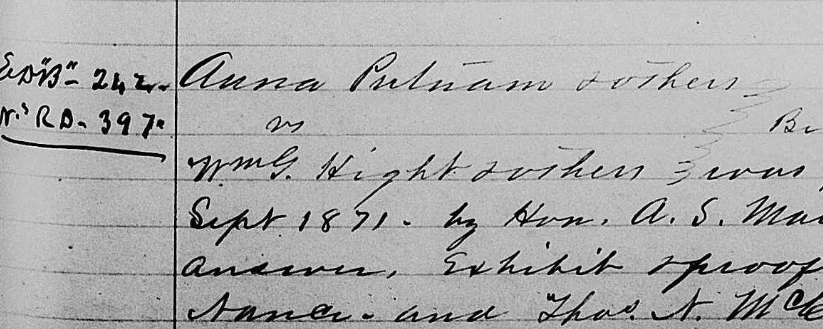 Anna Putnam & others
vs
Be
Wm G. Hight & others was
Sept 1871. by Hon. A. S. Mar
answer, Exhibit & proof
Nance. and Thos. N. McC
"B" - 242.
R D. 397.